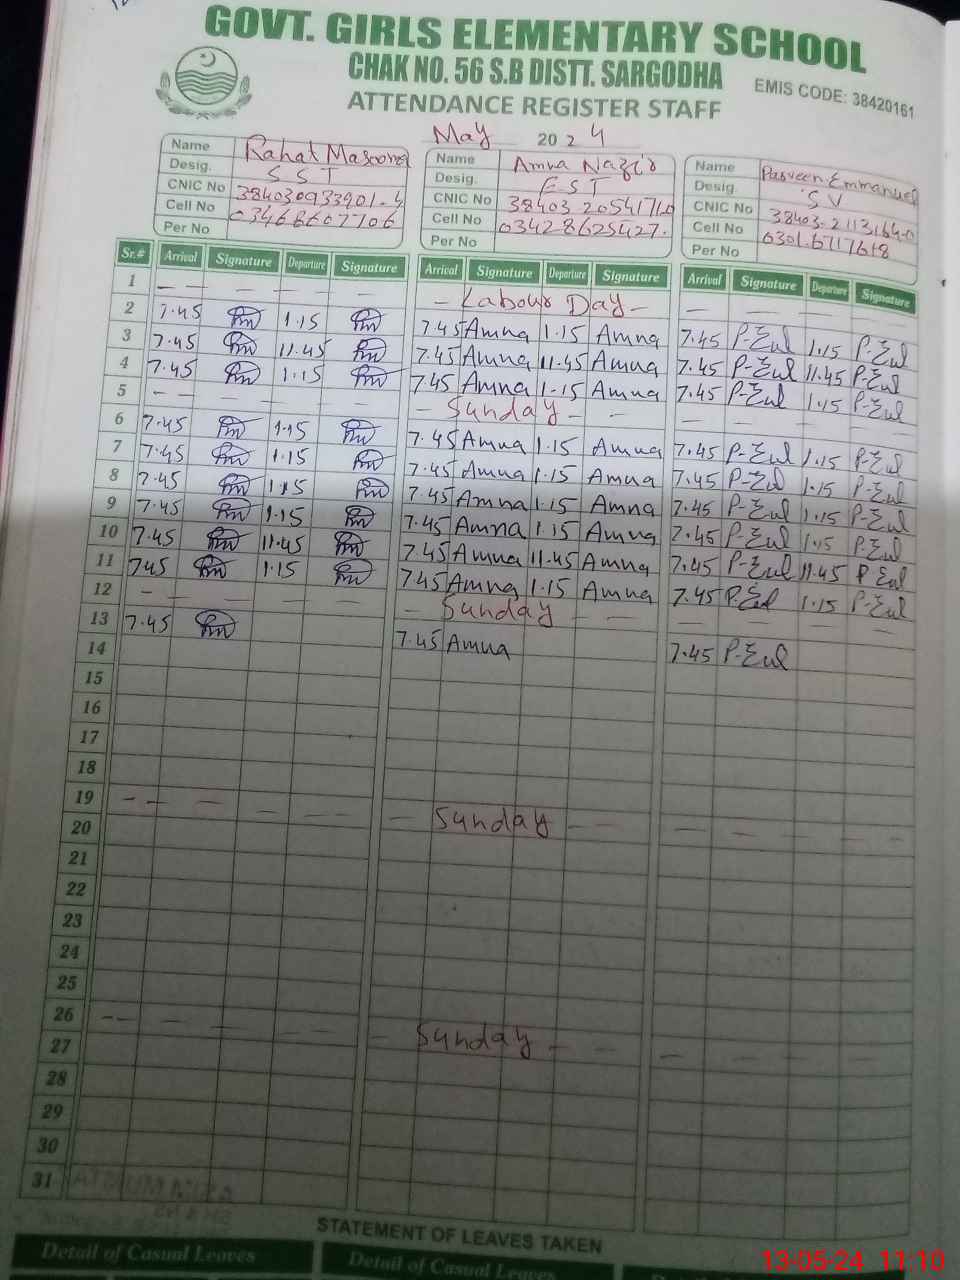 GOVT. GIRLS ELEMENTARY SCHOOL
CHAK NO. 56 S.B DISTT. SARGODHA
EMIS CODE: 38420161
ATTENDANCE REGISTER STAFF
May 2024
Name Rahat Masoona
Desig. SST
CNIC No 384030933901-4
Cell No 03468607706
Per No
Name Amna Nazir
Desig. EST
CNIC No 38403.2054171.0
Cell No 03428625427.
Per No
Name Parveen Emmanuel
Desig. SV
CNIC No 38403-2113164-0
Cell No 0301.6717618
Per No
Sr.# Arrival Signature Departure Signature Arrival Signature Departure Signature Arrival Signature Departure Signature
1 - Labour Day -
2 7.45 1.15 7.45 Amna 1.15 Amna 7.45 P-Eul 1.15 P-Eul
3 7.45 11.45 7.45 Amna 11.45 Amna 7.45 P-Eul 11.45 P-Eul
4 7.45 1.15 7.45 Amna 1.15 Amna 7.45 P-Eul 1.15 P-Eul
5 - Sunday -
6 7.45 1.15 7.45 Amna 1.15 Amna 7.45 P-Eul 1.15 P-Eul
7 7.45 1.15 7.45 Amna 1.15 Amna 7.45 P-Eul 1.15 P-Eul
8 7.45 1.15 7.45 Amna 1.15 Amna 7.45 P-Eul 1.15 P-Eul
9 7.45 1.15 7.45 Amna 1.15 Amna 7.45 P-Eul 1.15 P-Eul
10 7.45 11.45 7.45 Amna 11.45 Amna 7.45 P-Eul 11.45 P Eul
11 7.45 1.15 7.45 Amna 1.15 Amna 7.45 P.Eul 1.15 P-Eul
12 - Sunday -
13 7.45 7.45 Amna 7.45 P-Eul
14
15
16
17
18
19 - Sunday -
20
21
22
23
24
25
26 - Sunday -
27
28
29
30
31
STATEMENT OF LEAVES TAKEN
Detail of Casual Leaves Detail of Casual Leaves
13-05-24 11:10